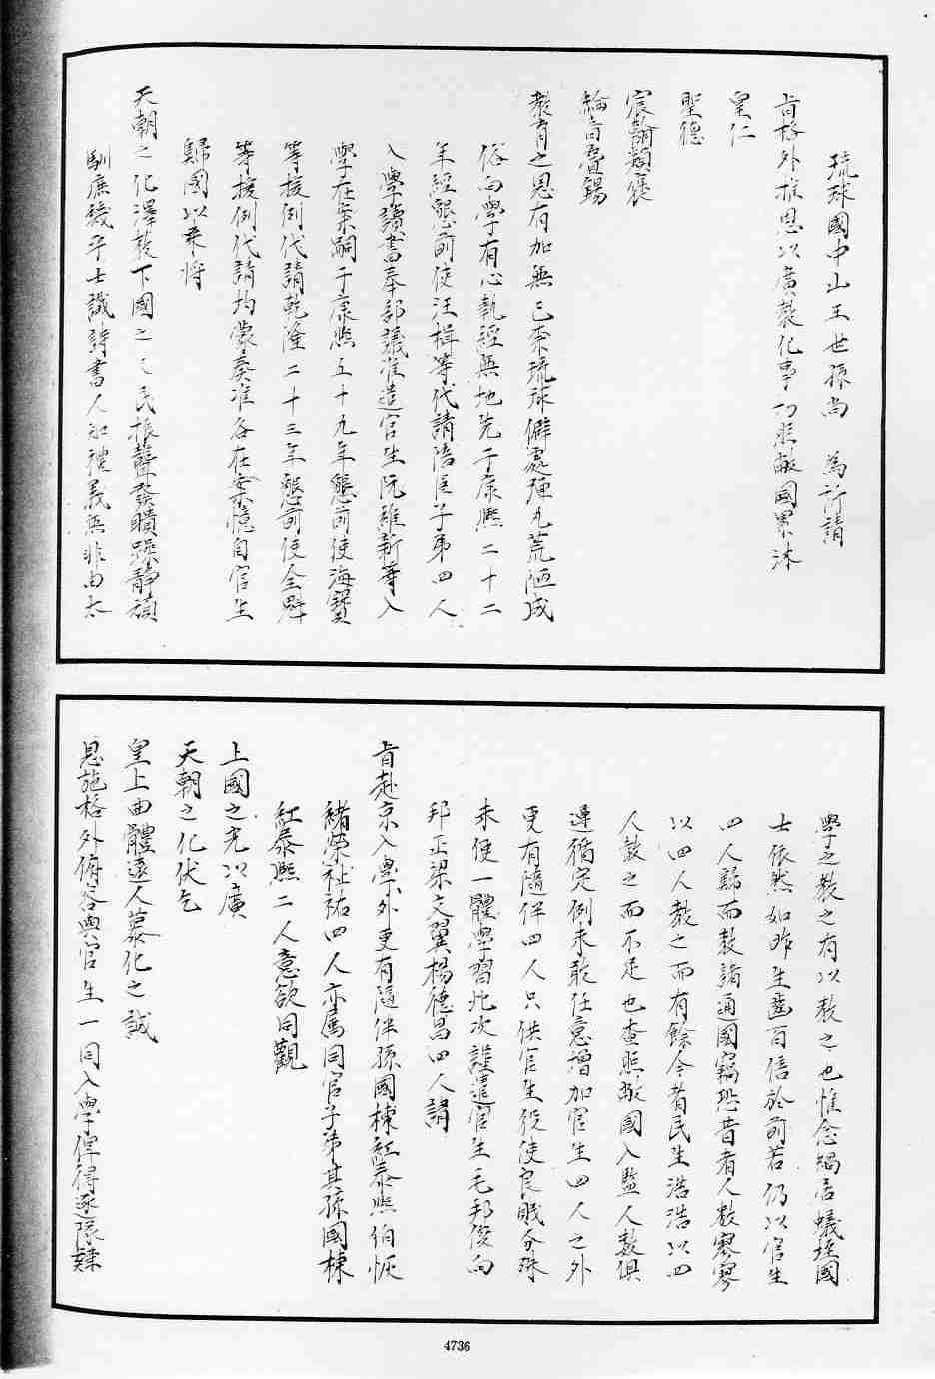 琉球國中山王世孫尚　為祈請
旨格外推恩以廣教化事切照敝國累沐
皇仁
聖德
宸翰類褒
綸音疊錫
教育之恩有加無已奈琉球僻處彈丸荒陋成
俗向學有心執經無地先于康熙二十二
年經懇前使汪楫等代請陪臣子弟四人
入學讀書奉部議准遣官生阮維新等入
學在案嗣于康熙五十九年懇前使海寶
等援例代請乾隆二十三年懇前使全魁
等援例代請均蒙奏准各在案憶自官生
歸國以來將
天朝之化澤敷下國之人民振聾發聵躁靜頑
馴庶幾乎士識詩書人知禮義無非由太
學之教之有以致之也惟念蝸居蟻垤國
士依然如昨生齒百倍於前若仍以官生
四人歸而教誨通國竊恐昔者人數寥寥
以四人教之而有餘今者民生浩浩以四
人教之而不足也查照敝國入監人數俱
遵循定例未敢任意增加官生四人之外
更有隨伴四人只供官生役使良賤分殊
未便一體學習此次謹遣官生毛邦俊向
邦正梁文翼楊德昌四人請
旨赴京入學外更有隨伴孫國棟紅泰熙伯恢
緒榮祉祐四人亦屬同官子弟其孫國棟
紅泰熙二人意欲同觀
上國之光以廣
天朝之化伏乞
皇上曲體遠人慕化之誠
恩施格外俯容與官生一同入學俾得逐隊隸
4736